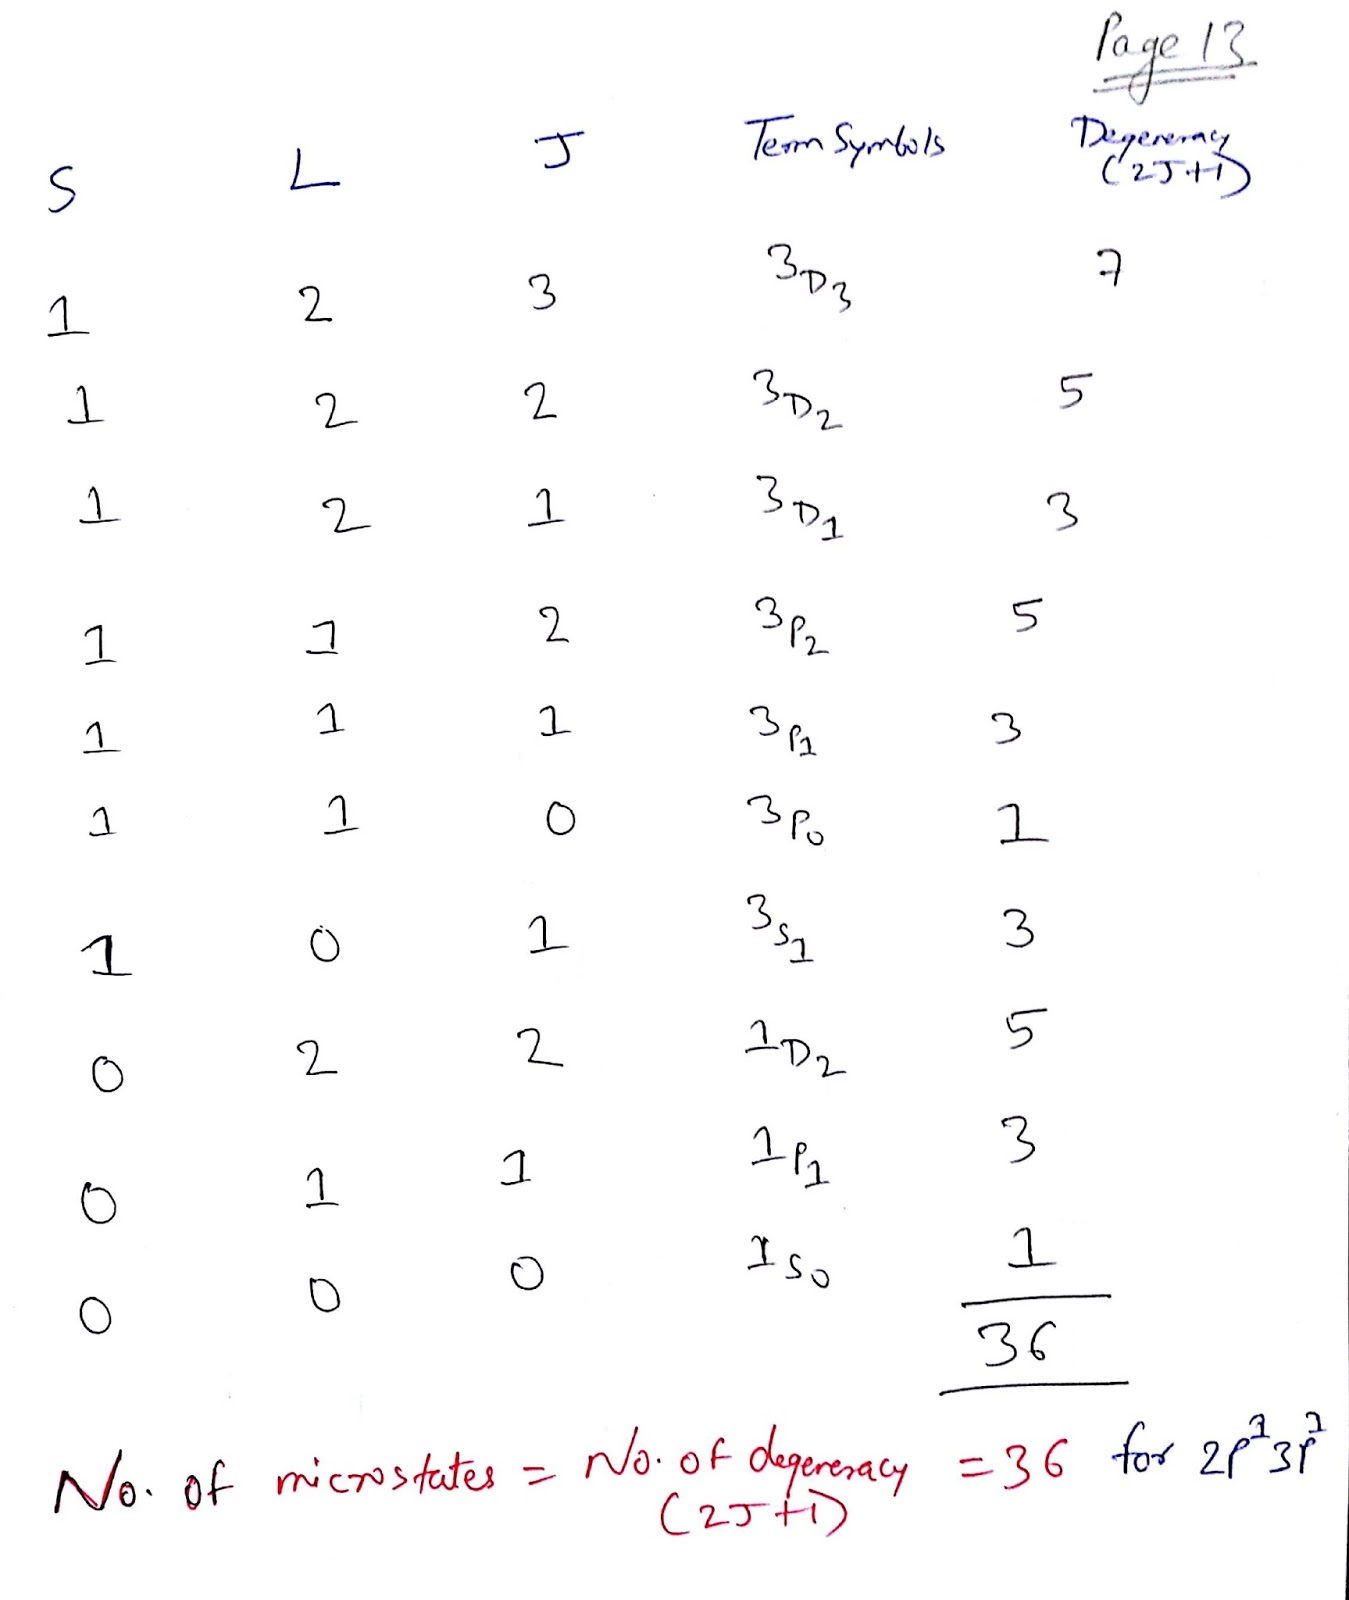 Page 13
S L J Term Symbols Degeneracy
(2J+1)
1 2 3 ³D₃ 7
1 2 2 ³D₂ 5
1 2 1 ³D₁ 3
1 1 2 ³P₂ 5
1 1 1 ³P₁ 3
1 1 0 ³P₀ 1
1 0 1 ³S₁ 3
0 2 2 ¹D₂ 5
0 1 1 ¹P₁ 3
0 0 0 ¹S₀ 1
36
No. of microstates = No. of degeneracy = 36 for 2p¹3p¹
(2J+1)